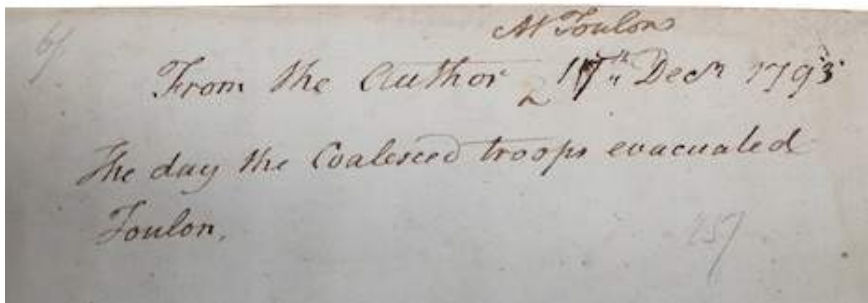 At Toulon
From the Author 17th Decr 1793
The day the Coalesced troops evacuated
Toulon.